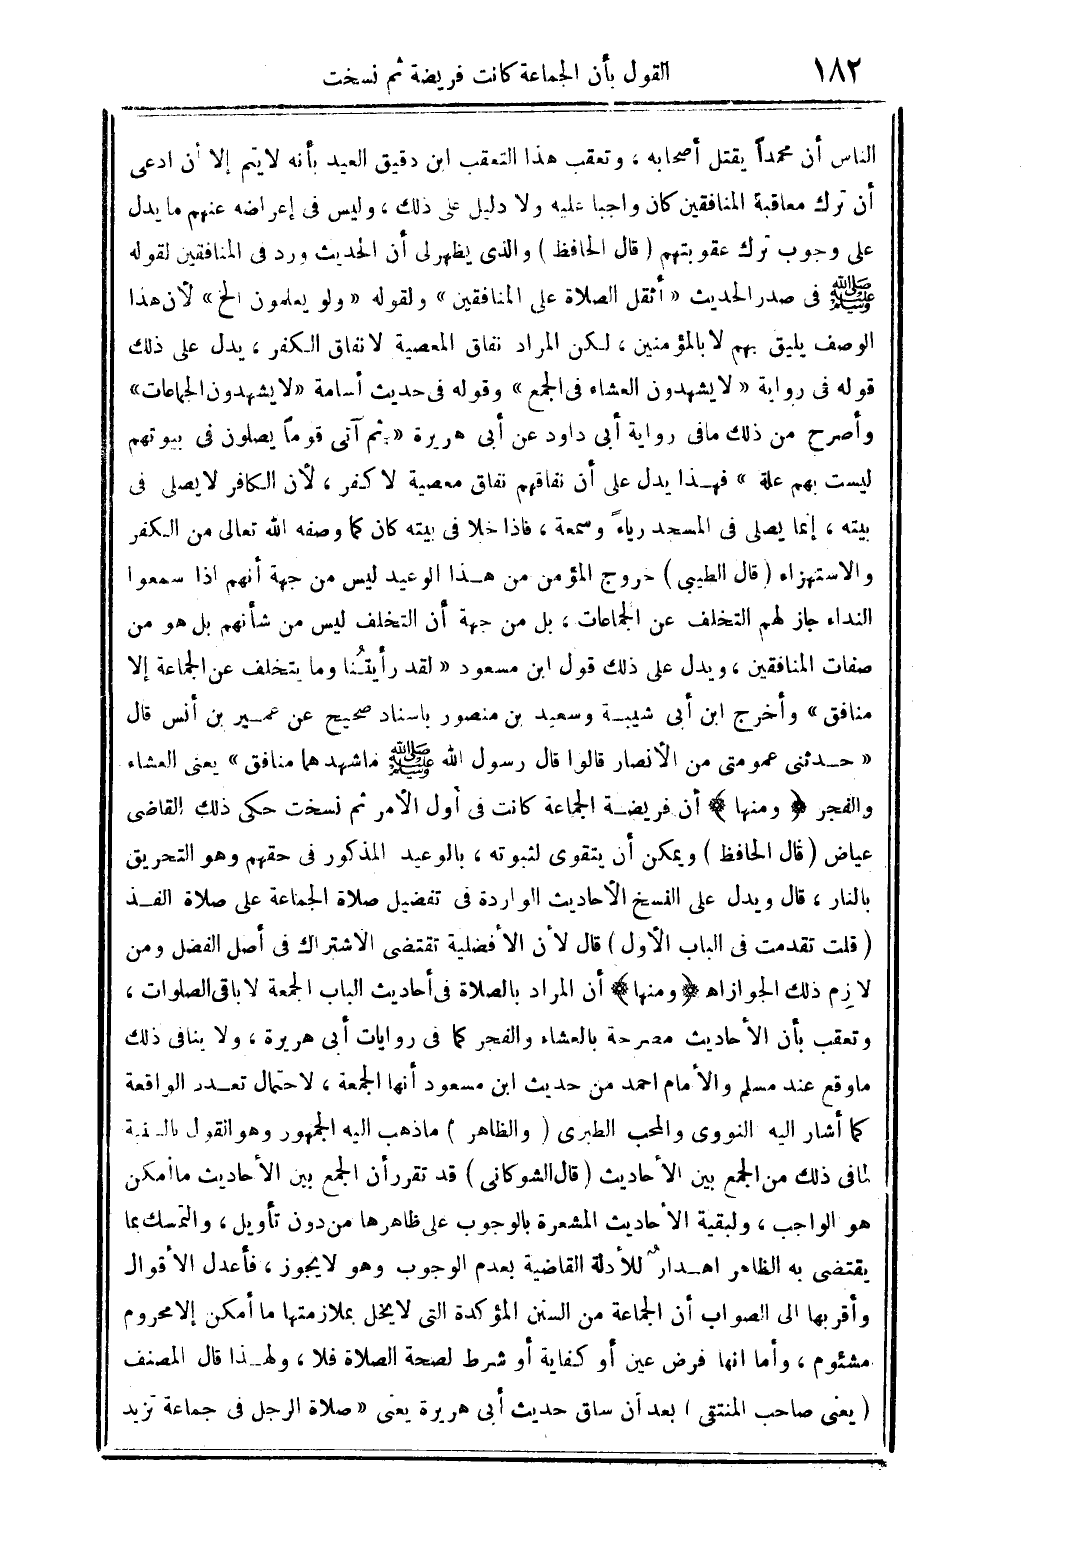 ١٨٢ القول بأن الجماعة كانت فريضة ثم نسخت
الناس أن محمداً يقتل أصحابه ، وتعقب هذا التعقب ابن دقيق العيد بأنه لايتم إلا أن ادعى
أن ترك معاقبة المنافقين كان واجبا عليه ولا دليل على ذلك ، وليس فى إعراضه عنهم مايدل
على وجوب ترك عقوبتهم ( قال الحافظ ) والذى يظهرلى أن الحديث ورد فى المنافقين لقوله
ﷺ فى صدر الحديث « أثقل الصلاة على المنافقين » ولقوله « ولو يعلمون الخ » لأن هذا
الوصف يليق بهم لابالمؤمنين ، لكن المراد نفاق المعصية لانفاق الكفر ، يدل على ذلك
قوله فى رواية « لايشهدون العشاء فى الجمع » وقوله فى حديث أسامة «لايشهدون الجماعات»
وأصرح من ذلك مافى رواية أبى داود عن أبى هريرة « ثم آتى قوماً يصلون فى بيوتهم
ليست بهم علة » فهذا يدل على أن نفاقهم نفاق معصية لا كفر ، لأن الكافر لايصلى فى
بيته ، إنما يصلى فى المسجد رياءً وسمعة ، فاذا خلا فى بيته كان كما وصفه الله تعالى من الكفر
والاستهزاء ( قال الطيبى ) خروج المؤمن من هذا الوعيد ليس من جهة أنهم اذا سمعوا
النداء جاز لهم التخلف عن الجماعات ، بل من جهة أن التخلف ليس من شأنهم بل هو من
صفات المنافقين ، ويدل على ذلك قول ابن مسعود « لقد رأيتُنا وما يتخلف عن الجماعة إلا
منافق » وأخرج ابن أبى شيبة وسعيد بن منصور باسناد صحيح عن عمير بن أنس قال
« حدثنى عمومتى من الأنصار قالوا قال رسول الله ﷺ ماشهدهما منافق » يعنى العشاء
والفجر ﴿ ومنها ﴾ أن فريضة الجماعة كانت فى أول الأمر ثم نسخت حكى ذلك القاضى
عياض ( قال الحافظ ) ويمكن أن يتقوى لثبوته ، بالوعيد المذكور فى حقهم وهو التحريق
بالنار ، قال ويدل على النسخ الأحاديث الواردة فى تفضيل صلاة الجماعة على صلاة الفذ
( قلت تقدمت فى الباب الأول ) قال لأن الأفضلية تقتضى الاشتراك فى أصل الفضل ومن
لازم ذلك الجوازاه ﴿ ومنها ﴾ أن المراد بالصلاة فى أحاديث الباب الجمعة لاباقى الصلوات ،
وتعقب بأن الأحاديث مصرحة بالعشاء والفجر كما فى روايات أبى هريرة ، ولا ينافى ذلك
ماوقع عند مسلم والأمام احمد من حديث ابن مسعود أنها الجمعة ، لاحتمال تعدد الواقعة
كما أشار اليه النووى والمحب الطبرى ( والظاهر ) ماذهب اليه الجمهور وهو القول بالسنية
لمافى ذلك من الجمع بين الأحاديث ( قال الشوكانى ) قد تقرر أن الجمع بين الأحاديث ماأمكن
هو الواجب ، ولبقية الأحاديث المشعرة بالوجوب على ظاهرها من دون تأويل ، والتمسك بما
يقتضى به الظاهر اهدارٌ للأدلة القاضية بعدم الوجوب وهو لايجوز ، فأعدل الأقوال
وأقربها الى الصواب أن الجماعة من السنن المؤكدة التى لايخل بملازمتها ماأمكن إلامحروم
مشئوم ، وأما انها فرض عين أو كفاية أو شرط لصحة الصلاة فلا ، ولهذا قال المصنف
( يعنى صاحب المنتقى ) بعد أن ساق حديث أبى هريرة يعنى « صلاة الرجل فى جماعة تزيد